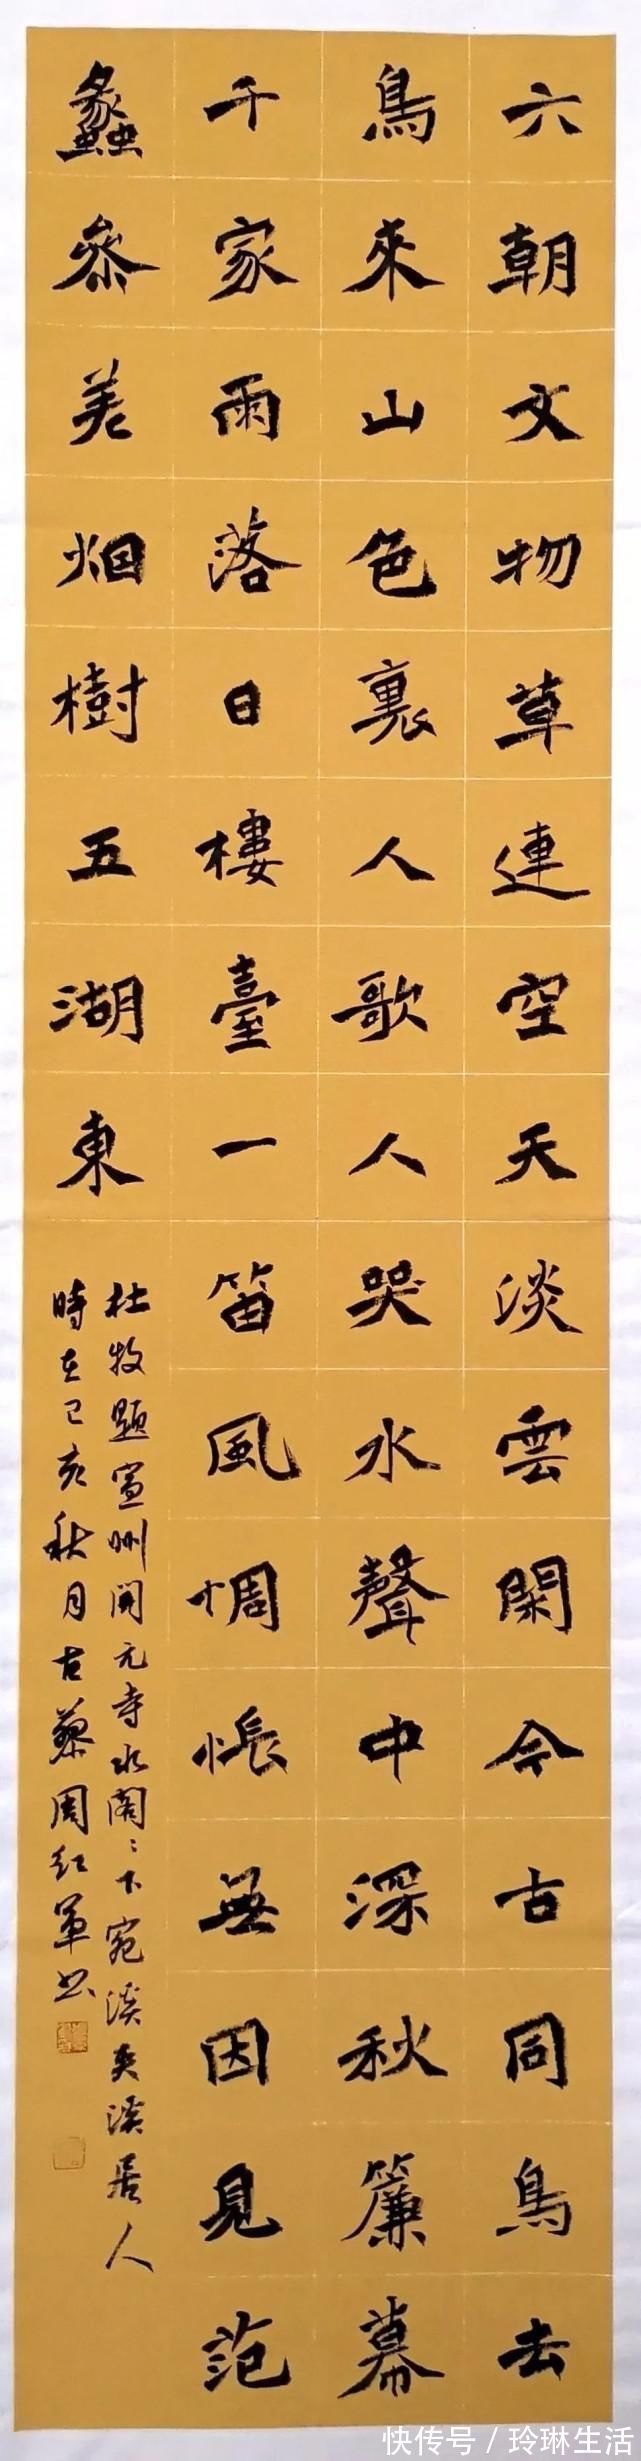 六朝文物草連空天淡雲閑今古同鳥去
鳥來山色裏人歌人哭水聲中深秋簾幕
千家雨落日樓臺一笛風惆悵無因見范
蠡參差烟樹五湖東
杜牧題宣州開元寺水閣〻下宛溪夾溪居人
時在己亥秋月古蔡周红軍书
快传号／玲琳生活